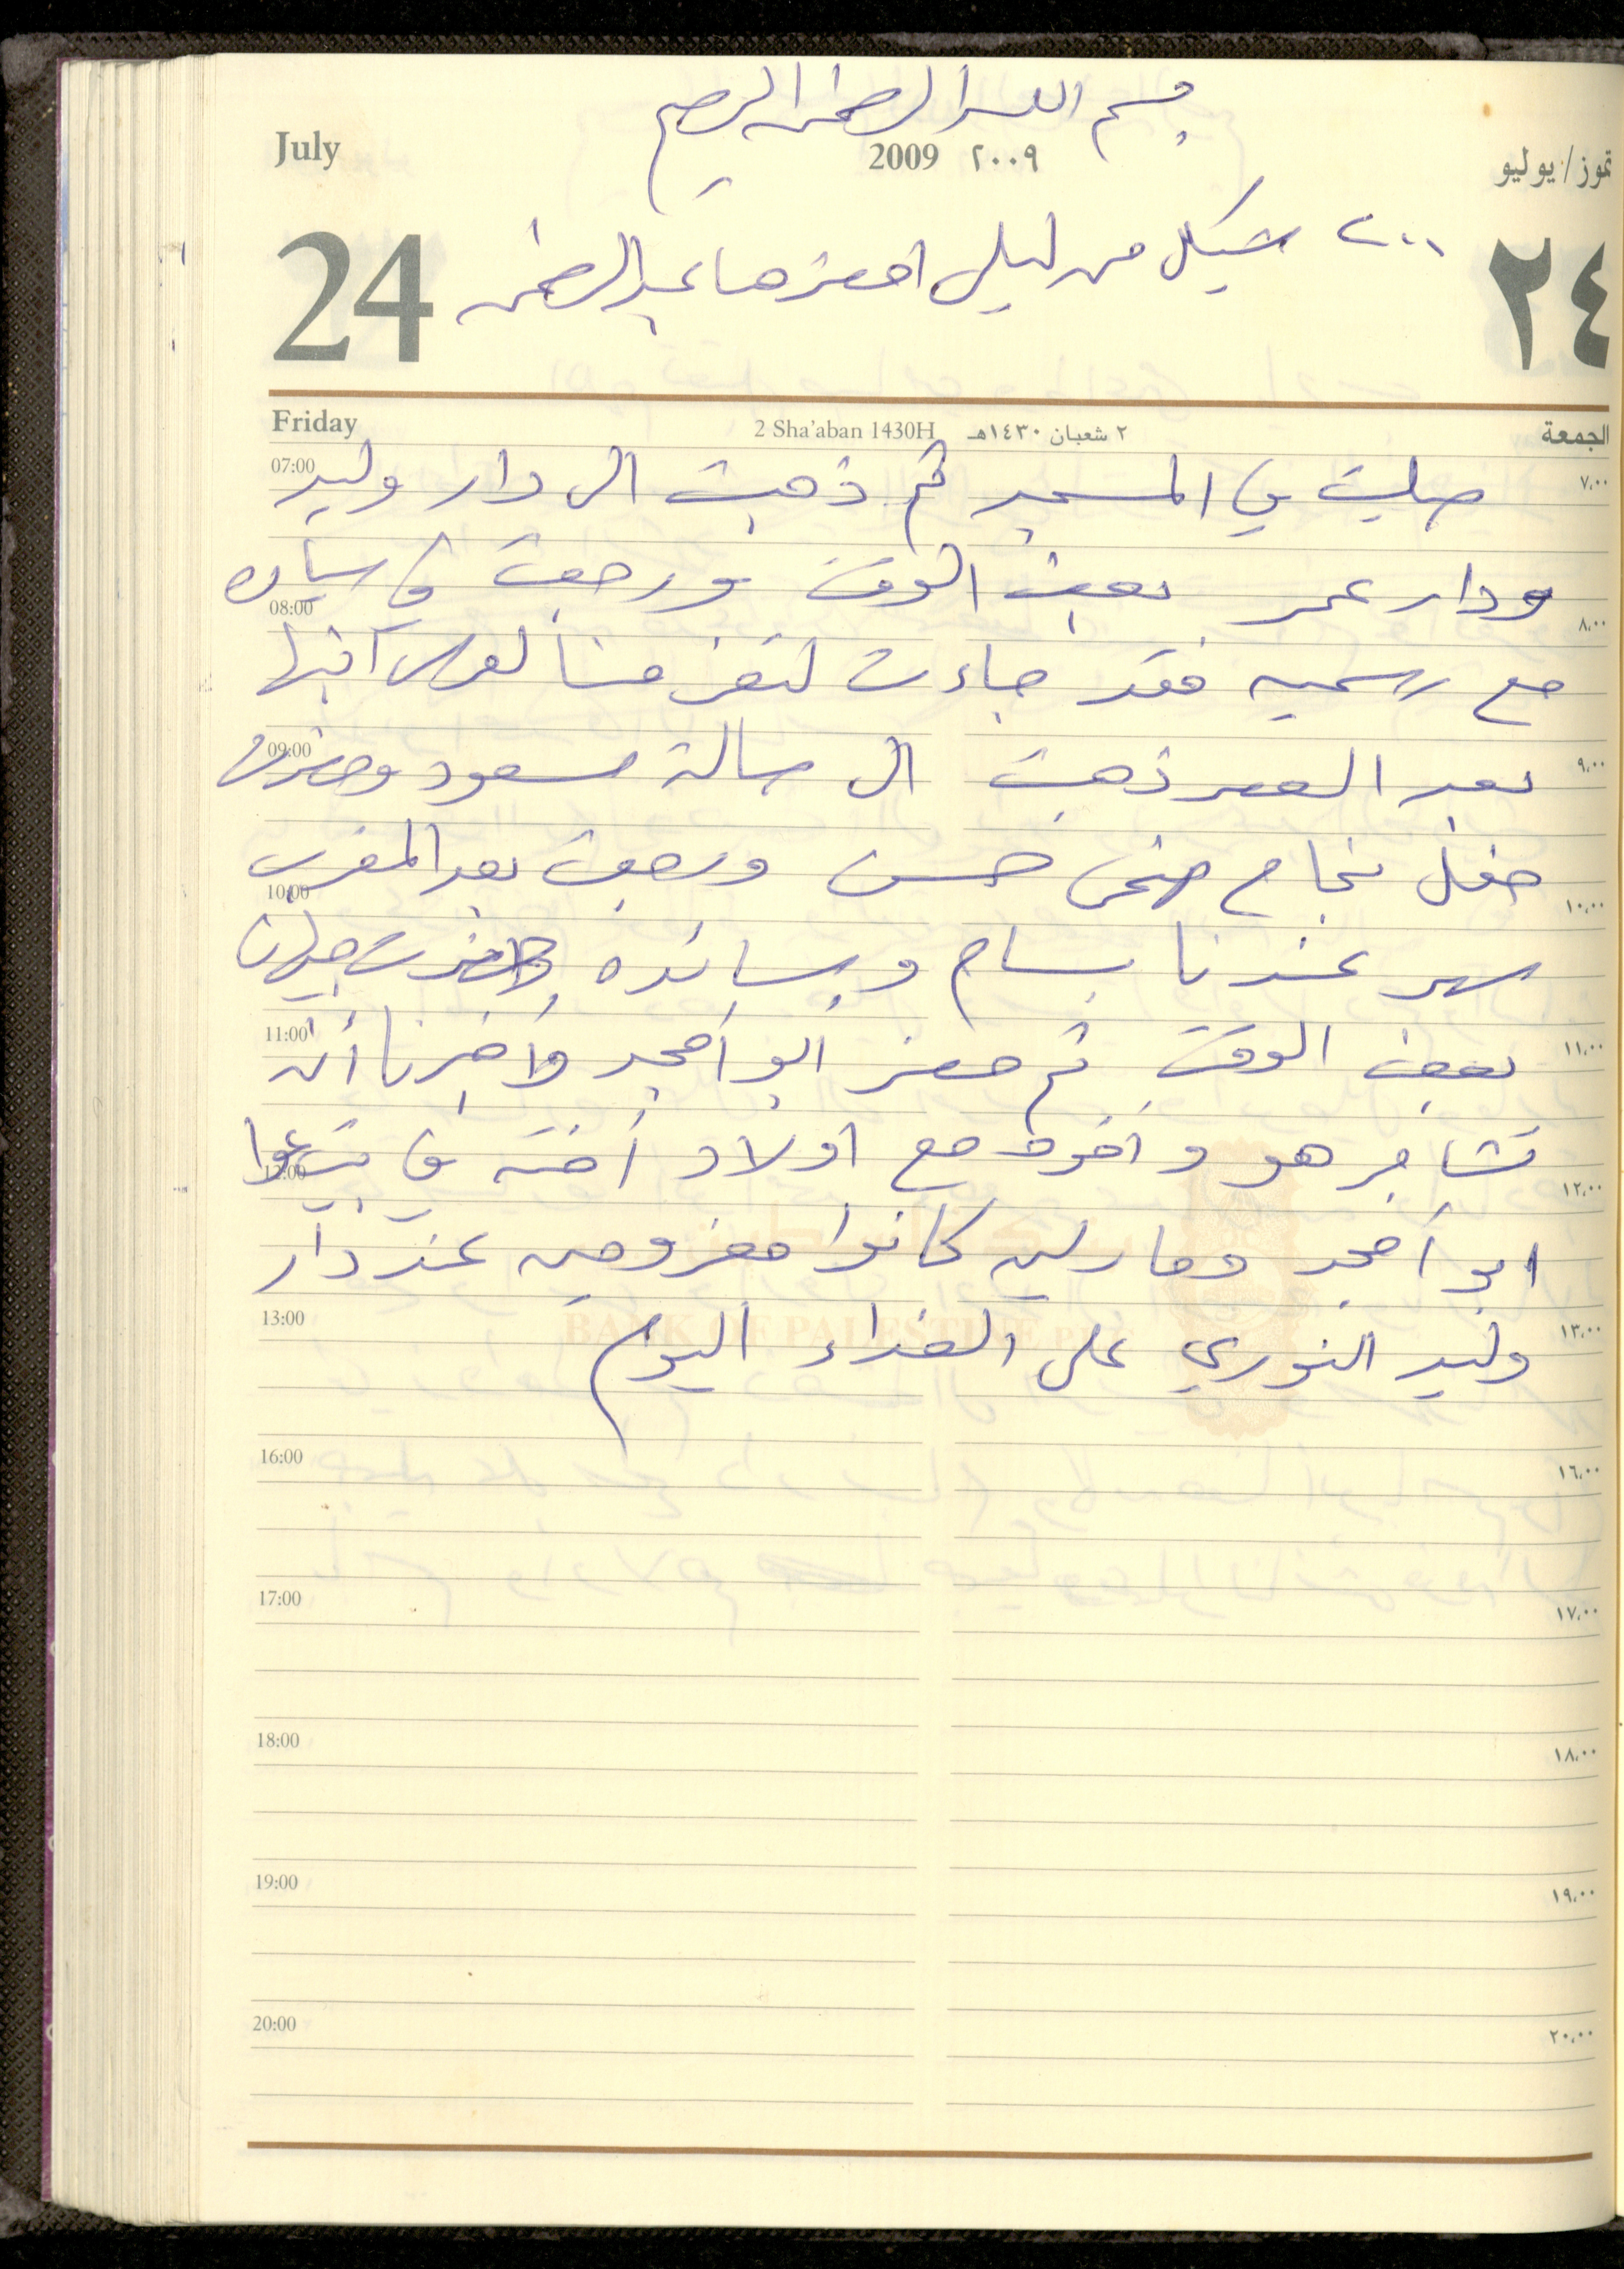 بسم الله الرحمن الرحيم
July 2009 ٢٠٠٩ تموز/يوليو
24 ٢٤
٢٠٠ شيكل من ليلى احضرها عبد الرحمن
Friday 2 Sha'aban 1430H ٢ شعبان ١٤٣٠هـ الجمعة
07:00 ٧,٠٠
صليت في المسجد ثم ذهبت الى دار وليد
ودار عمر بعض الوقت ورجعت في سياره
08:00 ٨,٠٠
مع رسميه فقد جاءت لتعزمنا لعرس ابنها
09:00 ٩,٠٠
بعد العصر ذهبت الى صالة مسعود وحضرت
حفل نجاح ضحى حسن ورجعت بعد المغرب
10:00 ١٠,٠٠
سهر عندنا بسام وسائده وحضرت جيهان
11:00 ١١,٠٠
بعض الوقت ثم حضر ابو امجد واخبرنا أنه
تشاجر هو واخوه مع اولاد أخته في
12:00 ١٢,٠٠
ابو أمجد ومارلين كانوا معزومين عند دار
13:00 ١٣,٠٠
وليد النوري على الغداء اليوم
BANK OF PALESTINE
16:00 ١٦,٠٠
17:00 ١٧,٠٠
18:00 ١٨,٠٠
19:00 ١٩,٠٠
20:00 ٢٠,٠٠